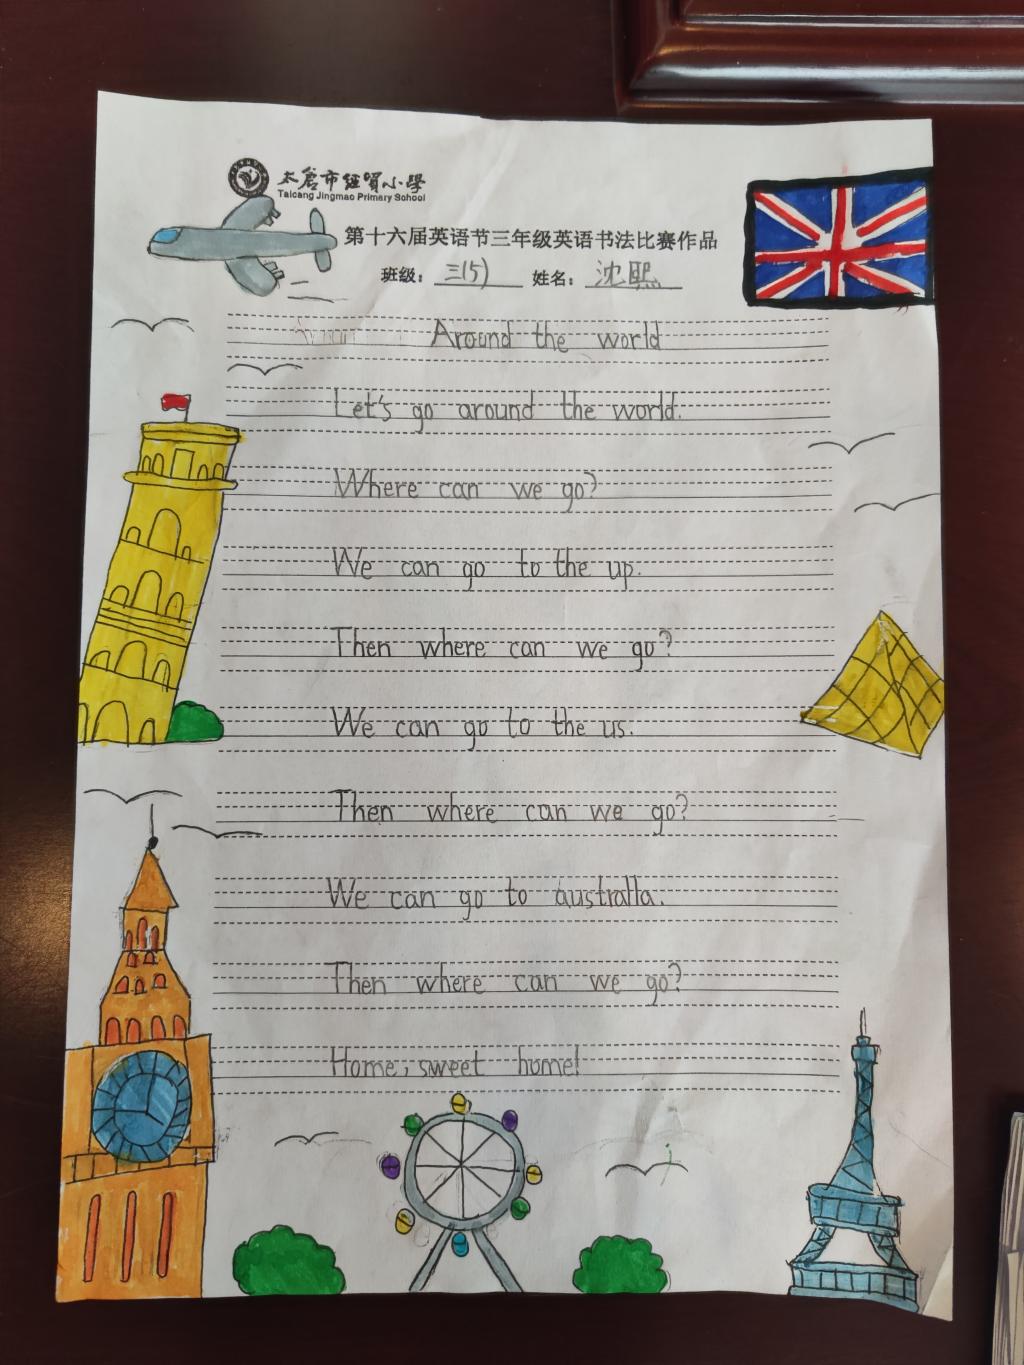 太倉市经贸小學
Taicang Jingmao Primary School
第十六届英语节三年级英语书法比赛作品
班级： 三(5) 姓名： 沈熙
Around the world
Let's go around the world.
Where can we go?
We can go to the up.
Then where can we go?
We can go to the us.
Then where can we go?
We can go to australla.
Then where can we go?
Home, sweet home!